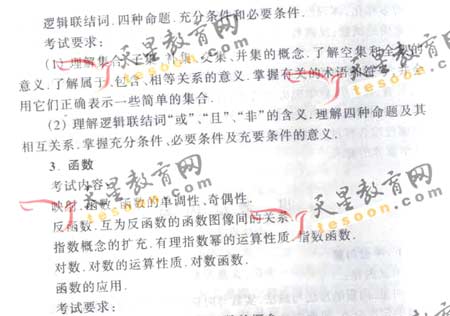 逻辑联结词.四种命题.充分条件和必要条件.
考试要求:
(1)理解集合、子集、补集、交集、并集的概念.了解空集和全集的
意义.了解属于、包含、相等关系的意义.掌握有关的术语
用它们正确表示一些简单的集合.
(2)理解逻辑联结词“或”、“且”、“非”的含义.理解四种命题及其
相互关系.掌握充分条件、必要条件及充要条件的意义.
3. 函数
考试内容:
映射.函数.函数的单调性、奇偶性.
反函数.互为反函数的函数图像间的关系.
指数概念的扩充.有理指数幂的运算性质.指数函数.
对数.对数的运算性质.对数函数.
函数的应用.
考试要求:
天星教育网
tesoon.com
天星教育网
tesoon.com
天星教育网
tesoon.com
天星教育网
tesoon.com